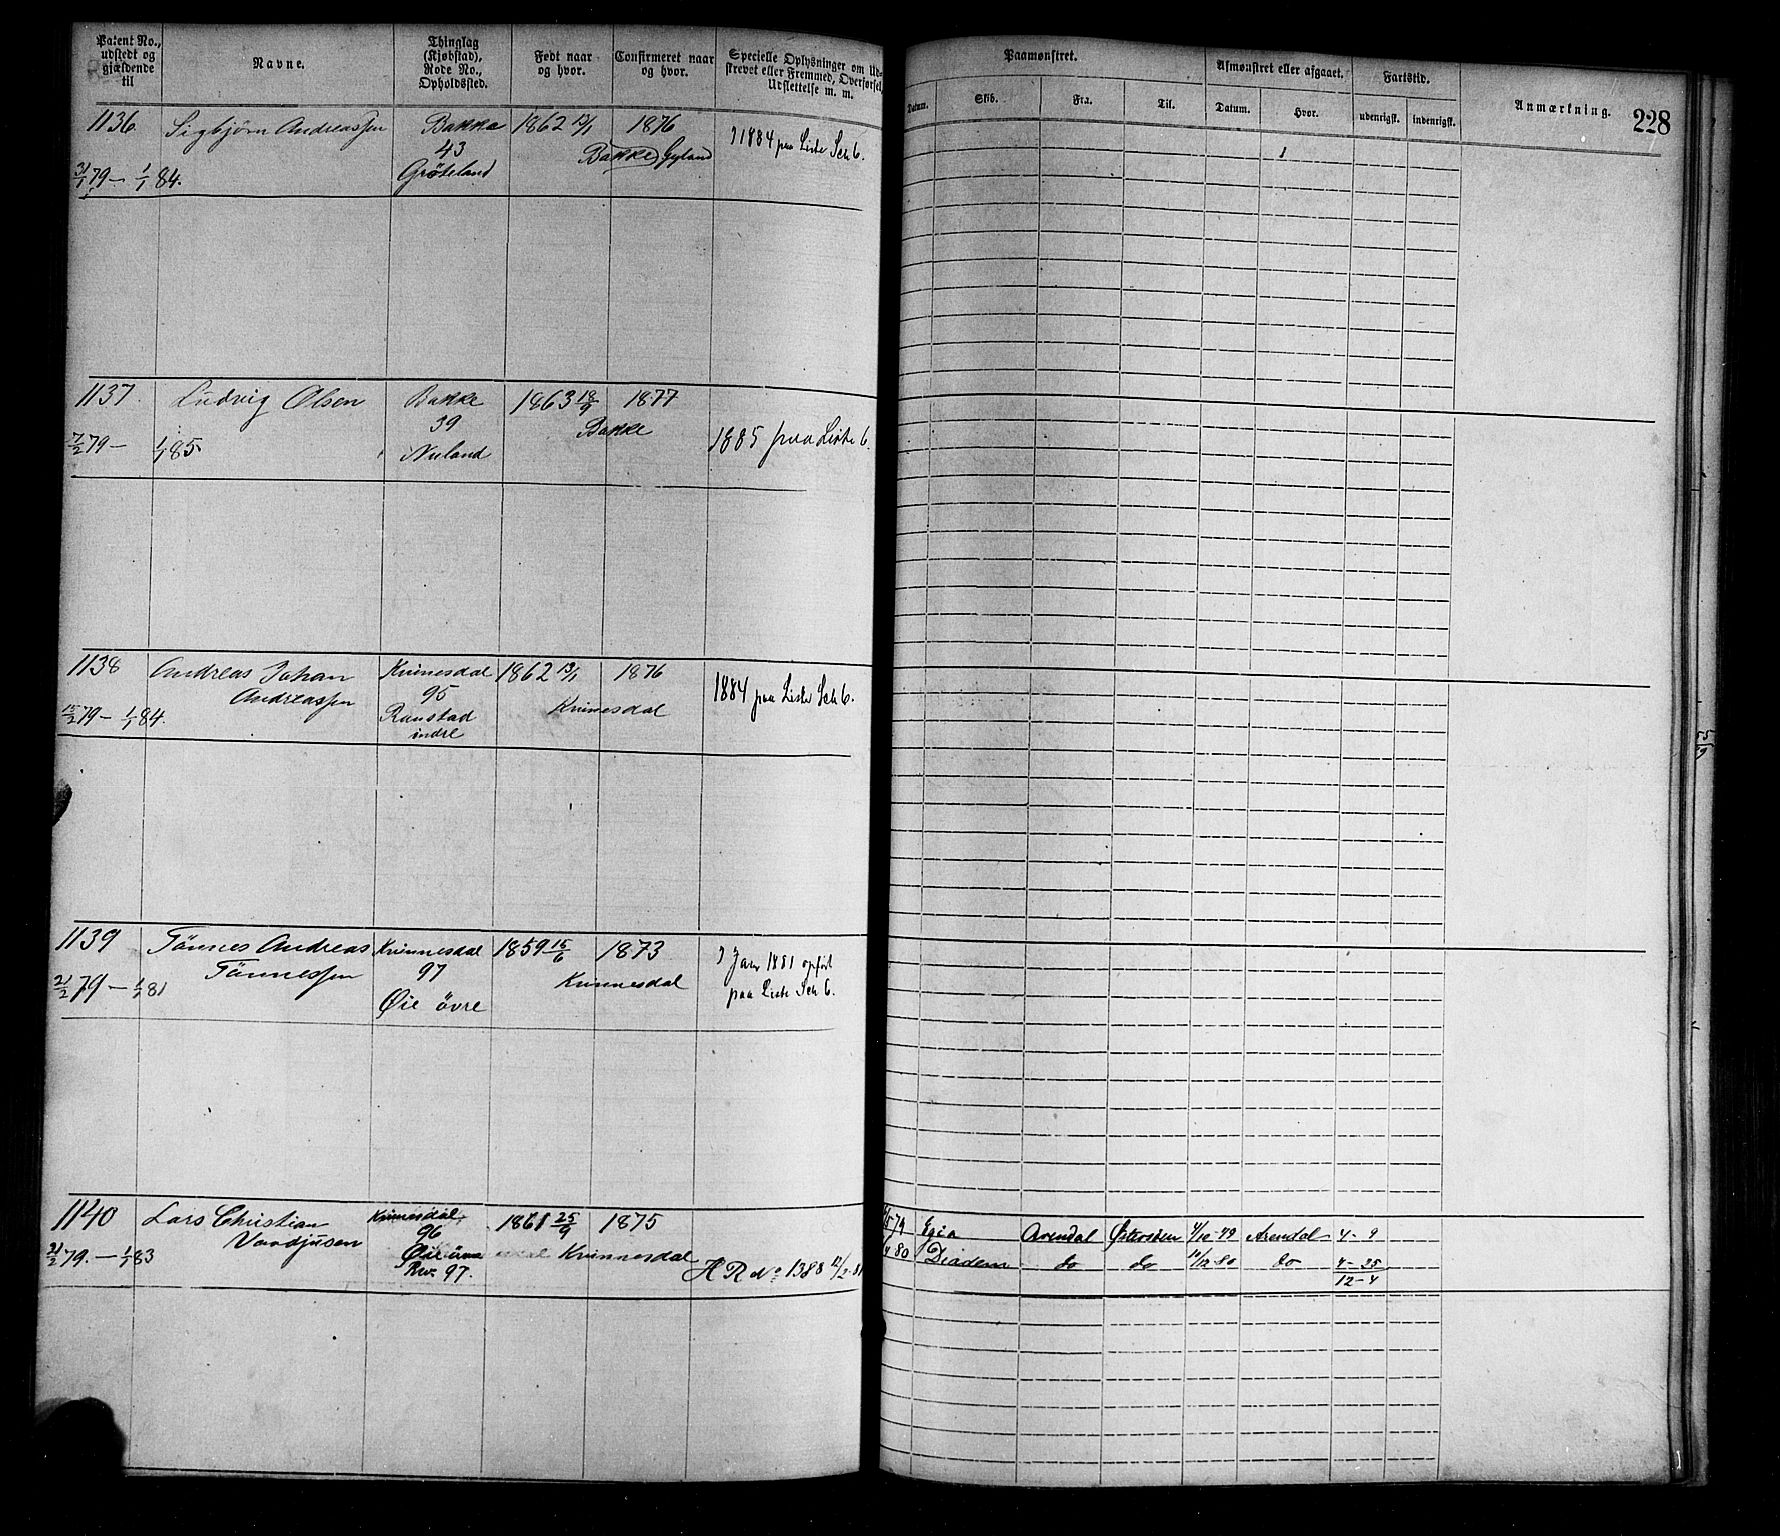 Patent No., udstedt og gjældende til
Navne.
Thinglag (Kjøbstad), Rode No., Opholdssted.
Født naar og hvor.
Confirmeret naar og hvor.
Specielle Oplysninger om Udstrevet eller Fremmed, Overførsel, Udslettelse m. m.
Paamønstret.
Datum.
Skib.
Fra.
Til.
Afmønstret eller afgaaet.
Datum.
Hvor.
Fartstid.
udenrigsk.
indenrigsk.
Anmærkning.
228
1136
Sigbjørn Andreassen
Bakke
43
Grøteland
1862 13/1
1876
Bakke, Gyland
1884 paa Liste Sch 6.
31/1 79 — 1/1 84.
1137
Ludvig Olsen
Bakke
39
Nuland
1863 18/9
1877
Bakke
1885 paa Liste 6.
7/2 79 — 1/1 85
1138
Andreas Johan
Andreassen
Kvinnesdal
95
Ranstad
indre
1862 13/1
1876
Kvinnesdal
1884 paa Liste Sch 6.
15/2 79 — 1/1 84.
1139
Tönnes Andreas
Tönnessen
Kvinnesdal
97
Øie övre
1859 15/6
1873
Kvinnesdal
Janr 1881 opført
paa Liste Sch 6.
21/2 79 — 1/1 81
1140
Lars Christian
Kvinnesdal,
96
Rve. 97.
1861 25/9
1875
Kvinnesdal
H R No 1388 12/2 81
21/2 79. — 1/1 83
79
Arendal
4/10-79
Arendal
4-9
80
Diadem
do
do
10/12-80
do
4-25
12-4